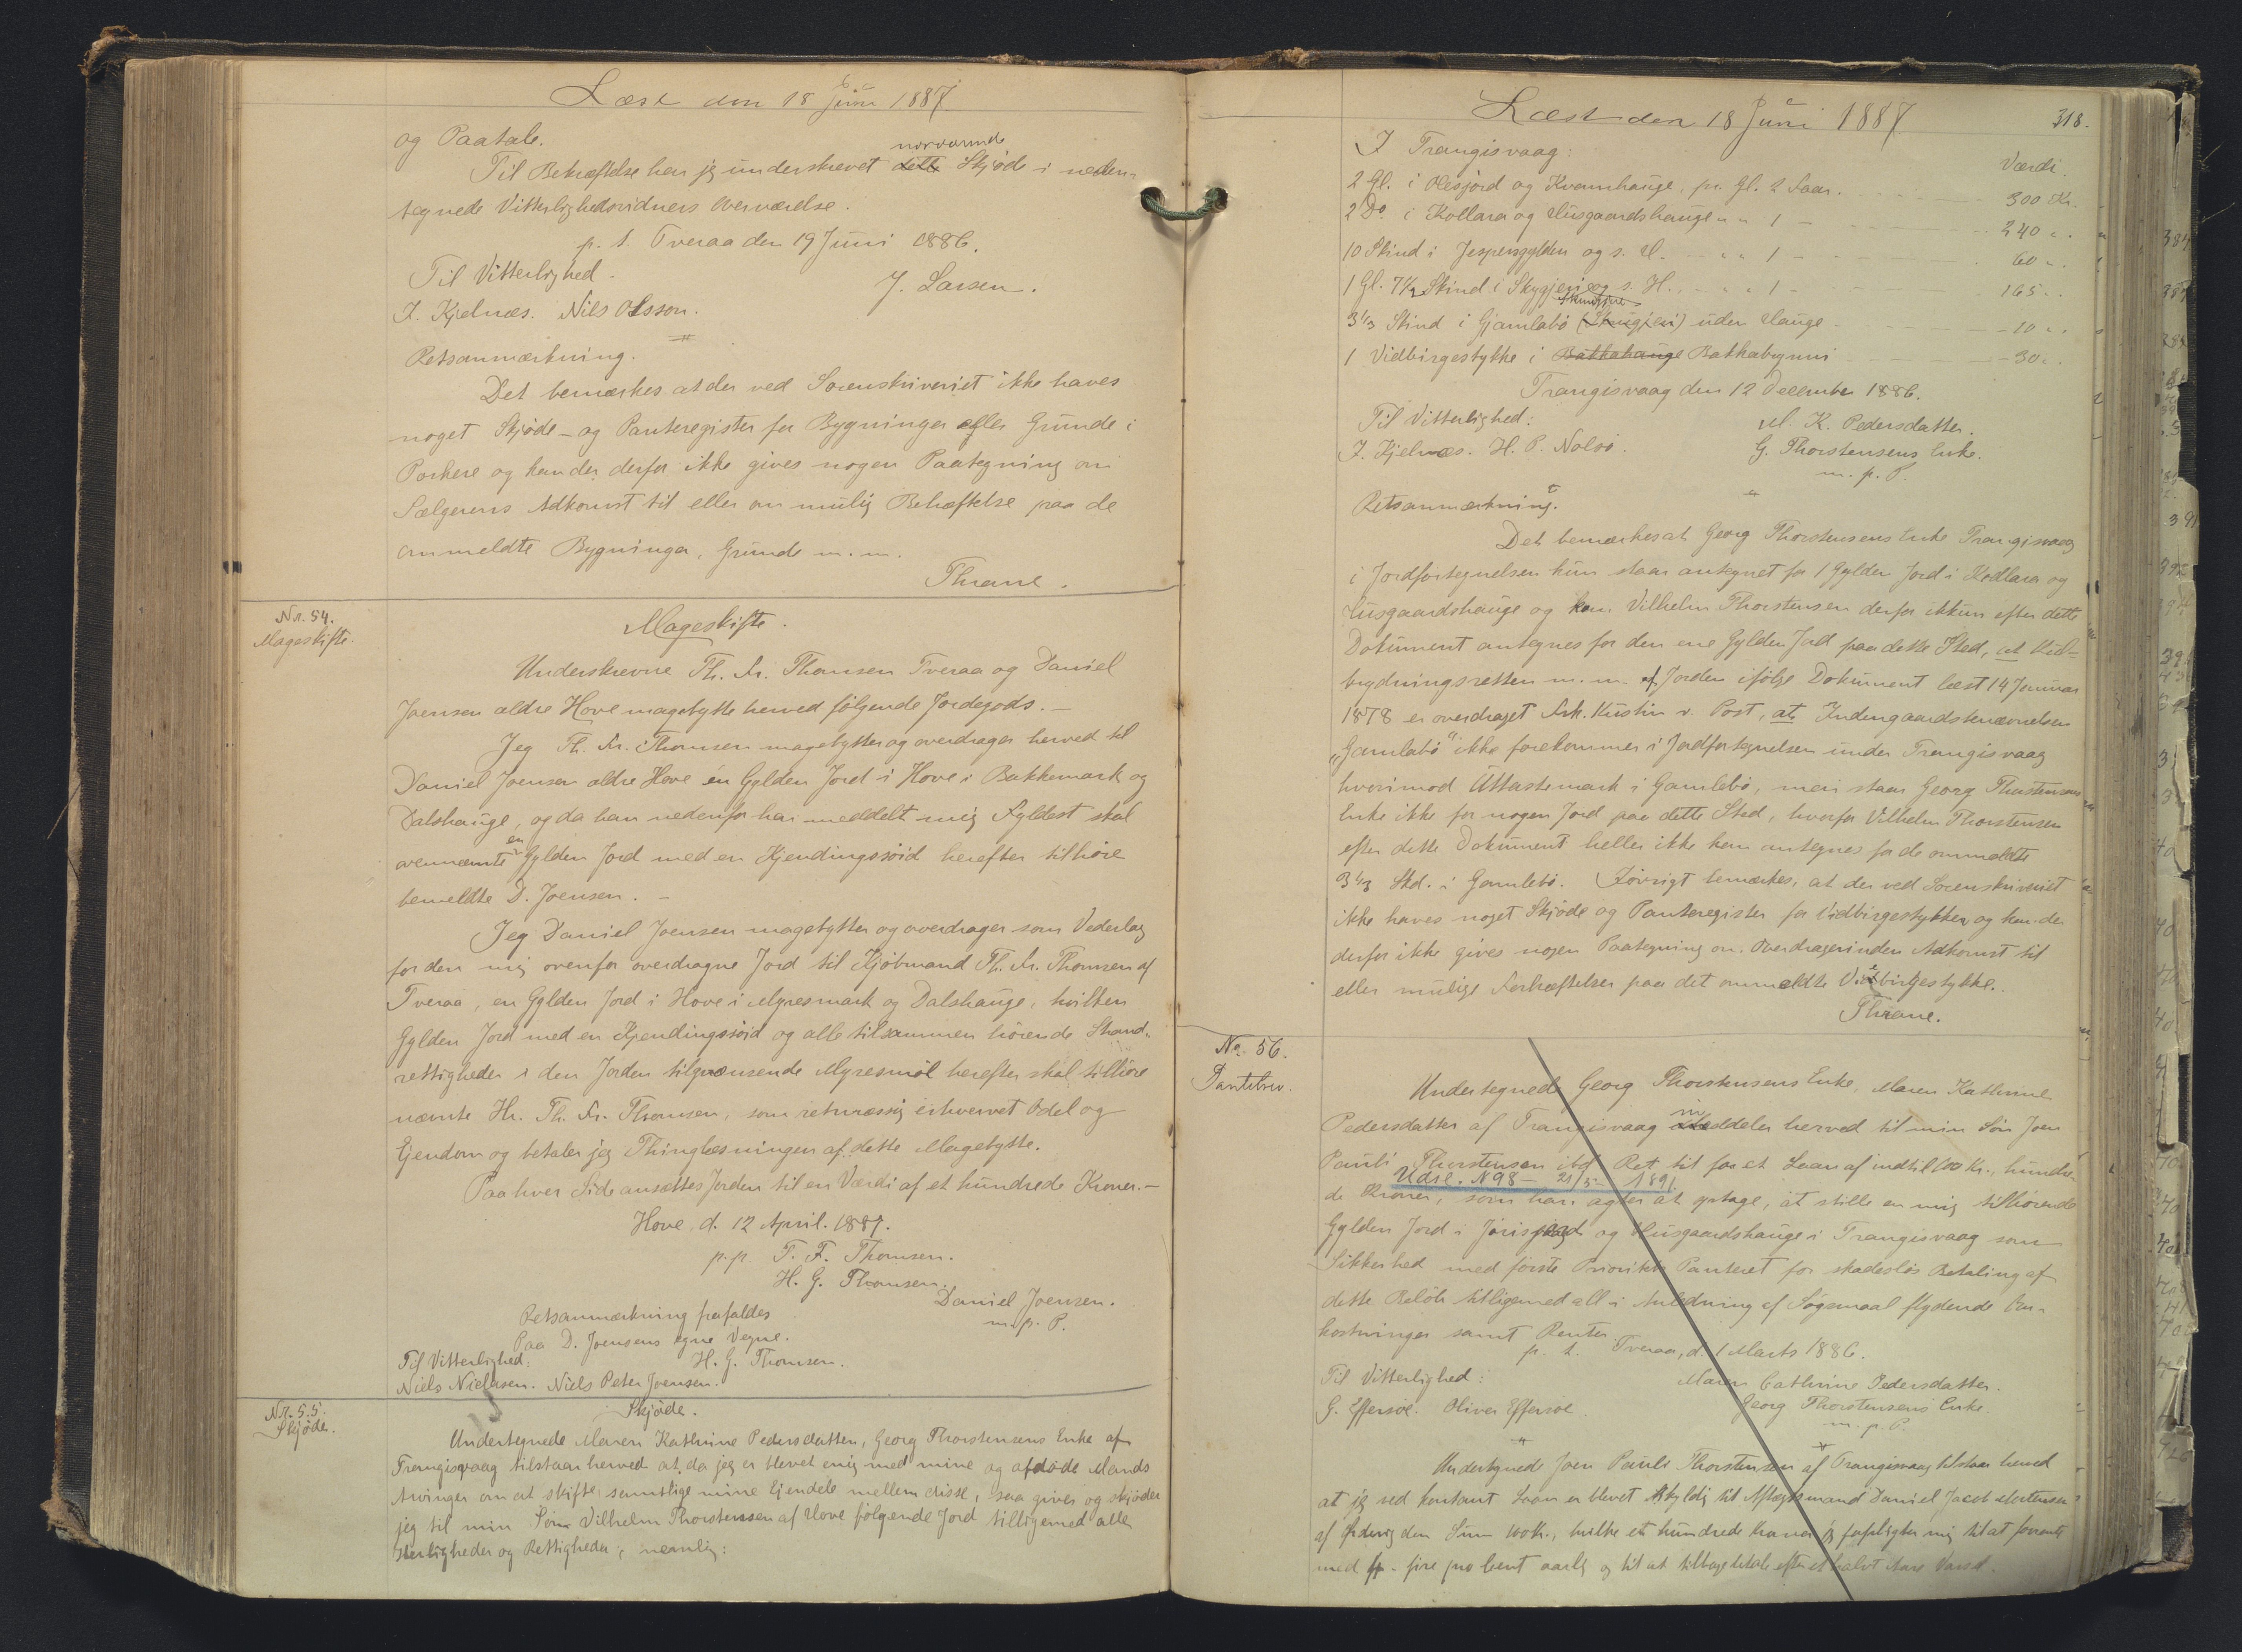 Læst den 18 Juni 1887
og Paatale.
Til Bekræftelse har jeg underskrevet dette nærværende Skjøde i neden-
tegnede Vitterlighedsvidners Overværelse.
p. t. Tveraa den 19 Juni 1886.
Til Vitterlighed
J. Larsen.
J. Kjelnæs. Niels Olsson.
Retsanmærkning.
Det bemærkes at der ved Sorenskriveriet ikke haves
noget Skjøde- og Panteregister for Bygninger eller Grunde i
Porkere og kan der derfor ikke gives nogen Paategning om
Sælgerens Adkomst til eller om mulig Behæftelse paa de
anmeldte Bygninger, Grunde m. m.
Thrane.
Nr. 54.
Mageskifte.
Mageskifte.
Underskrevne Th. Fr. Thomsen Tveraa og Daniel
Joensen ældre Hove magebytte herved følgende Jordegods. -
Jeg Th. Fr. Thomsen magebytter og overdrager herved til
Daniel Joensen ældre Hove én Gylden Jord i Hove i Bakkemark og
Dalshauge, og da han nedenfor har meddelt mig Fyldest skal
ovennævnte en Gylden Jord med en Kjendingssøid herefter tilhøre
bemeldte D. Joensen. -
Jeg Daniel Joensen magebytter og overdrager som Vederlag
for den mig ovenfor overdragne Jord til Kjøbmand Th. Fr. Thomsen af
Tveraa, en Gylden Jord i Hove i Myresmark og Dalshauge, hvilken
Gylden Jord med en Kjendingssøid og alle tilsammen hørende Strand-
rettigheder i den Jorden tilgrænsende Myresmøl herefter skal tilhøre
nævnte Hr. Th. Fr. Thomsen, som retmæssig erhvervet Odel og
Ejendom og betaler jeg Thinglæsningen af dette Magebytte.
Paa hver Side ansættes Jorden til en Værdi af et hundrede Kroner. -
Hove, d. 12 April. 1887.
p. p. T. F. Thomsen.
H. G. Thomsen.
Daniel Joensen.
m. p. P.
Retsanmærkning frafaldes
Paa D. Joensens egne Vegne.
Til Vitterlighed:
H. G. Thomsen.
Niels Nielsen. Niels Peter Joensen.
Nr. 55.
Skjøde.
Skjøde.
Undertegnede Maren Kathrine Pedersdatter, Georg Thorstensens Enke af
Trangisvaag tilstaar herved at, da jeg er blevet enig med mine og afdøde Mands
Arvinger om at skifte samtlige mine Ejendele mellem disse, saa giver og skjøder
jeg til min Søn Vilhelm Thorstensen af Hove følgende Jord tilligemed alle
Herligheder og Rettigheder, nemlig:
Læst den 18 Juni 1887
318.
I Trangisvaag:
Værdi.
2 Gl. i Olesjord og Kvannhauge, pr. Gl. 2 Faar. 300 Kr.
2 Do. i Kollara og Husgaardshauge " " 1 - 240 "
10 Skind i Jespersgylden og s. H. - " " 1 - 60 "
1 Gl. 7 1/2 Skind i Skygjeri og s. H. - " " 1 - 165 "
3 1/3 Skind i Gjamlabø (Skugjeri) uden Hauge 10 "
1 Vidbirgestykke i Bakkahauge Bakkabegynni 30 "
Trangisvaag den 12 December 1886.
Til Vitterlighed:
M. K. Pedersdatter.
J. Kjelnæs. H. P. Nolsø.
G. Thorstensens Enke.
m. p. P.
Retsanmærkning.
Det bemærkes at Georg Thorstensens Enke Trangisvaag
i Jordfortegnelsen kun staar antegnet for 1 Gylden Jord i Kodlara og
Husgaardshauge og kan Vilhelm Thorstensen derfor ikkun efter dette
Dokument antegnes for den ene Gylden Jord paa dette Sted, at Ud-
brydningsretten m. m. af Jorden ifølge Dokument læst 14 Januar
1878 er overdraget Frk. Kustin v. Post, at Indengaardsbenævnelsen
"Gamlabø" ikke forekommer i Jordfortegnelsen under Trangisvaag
hvorimod Uttastemark i Gamlebø, men staar Georg Thorstensens
Enke ikke for nogen Jord paa dette Sted, hvorfor Vilhelm Thorstensen
efter dette Dokument heller ikke kan antegnes for de ommeldte
3 1/3 Skd. i Gamlebø. Iøvrigt bemærkes, at der ved Sorenskriveriet
ikke haves noget Skjøde og Panteregister for Vidbirgestykker og kan der
derfor ikke gives nogen Paategning om Overdragerinden Adkomst til
eller mulige Forhæftelser paa det ommeldte Vidbirgestykke.
Thrane.
No. 56.
Pantebrev.
Undertegnede Georg Thorstensens Enke, Maren Kathrine
Pedersdatter af Trangisvaag meddeler herved til min Søn Joen
Pauli Thorstensen itd Ret til for et Laan af indtil 100 Kr., hundre-
Udsl. N 98 - 21/5 - 1891
de Kroner, som han agter at optage, at stille en mig tilhørende
Gylden Jord i Jorisjord og Husgaardshauge i Trangisvaag som
Sikkerhed med første Prioritets Panteret for skadesløs Betaling af
dette Beløb tilligemed all i Anledning af Søgsmaal flydende Om-
kostninger samt Renter.
p. t. Tveraa, d. 1 Marts 1886.
Til Vitterlighed:
Maren Cathrine Pedersdatter.
G. Effersøe. Oliver Effersøe
Georg Thorstensens Enke.
m. p. P.
Undertegnede Joen Pauli Thorstensen af Trangisvaag tilstaar herved
at jeg ved kontant Laan er blevet skyldig til Aftægtsmand Daniel Jacob Mortensen
af den Sum 100 Kr., hvilke et hundrede Kroner jeg forpligter mig til at forrente
med fire pro Cent aarlig og til at tilbagebetale efter et halvt Aars Varsel.